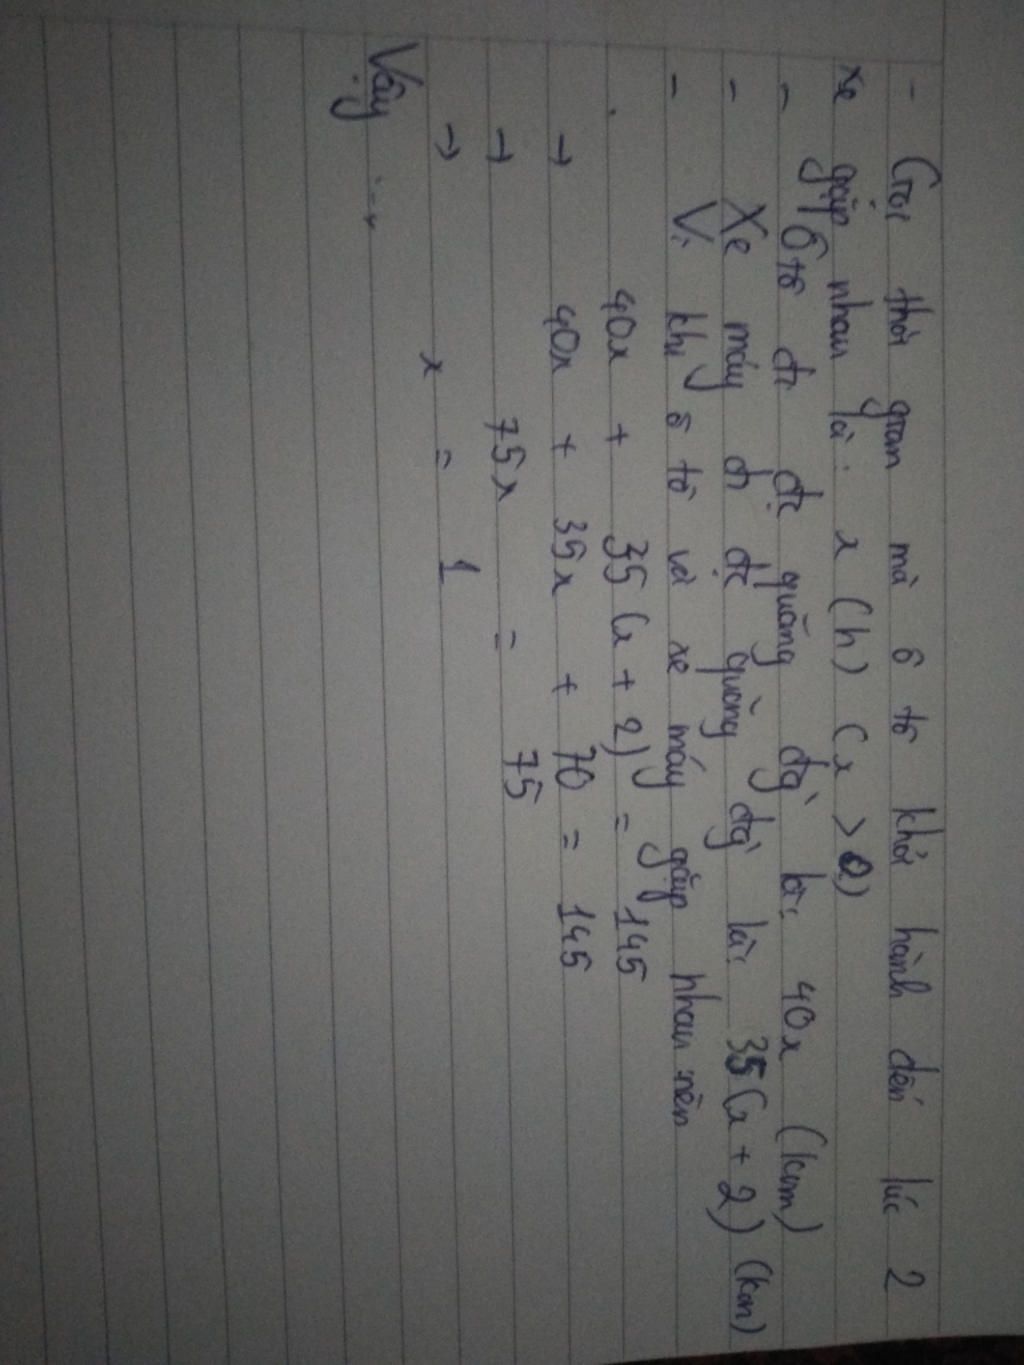 - Gọi thời gian mà ô tô khởi hành đến lúc 2
xe gặp nhau là: x (h) (x > 0)
- Ô tô đi đc quãng đg là: 40x (km)
- Xe máy đi đc quãng đg là: 35(x + 2) (km)
- Vì khi ô tô và xe máy gặp nhau nên
40x + 35(x + 2) = 145
→ 40x + 35x + 70 = 145
→ 75x = 75
→ x = 1
Vậy ...